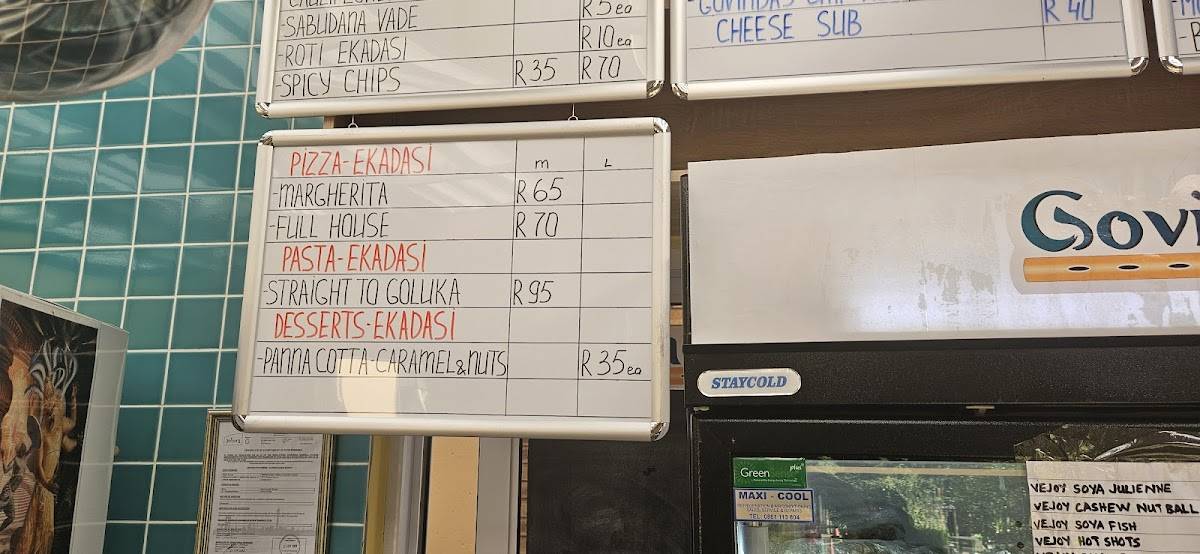 R5ea
-SABUDANA VADE
-ROTI EKADASI R10ea
-SPICY CHIPS R35 R70
CHEESE SUB R40
PIZZA-EKADASI M L
-MARGHERITA R65
-FULL HOUSE R70
PASTA-EKADASI
-STRAIGHT TO GOLUKA R95
DESSERTS-EKADASI
-PANNA COTTA CARAMEL&NUTS R35ea
Govi
STAYCOLD
Green plus
MAXI-COOL
VEJOY SOYA JULIENNE
VEJOY CASHEW NUT BALL
VEJOY SOYA FISH
VEJOY HOT SHOTS